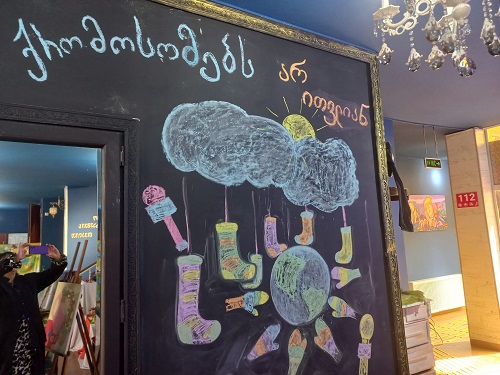 ქრომოსომებს
არ
ითვლიან
112